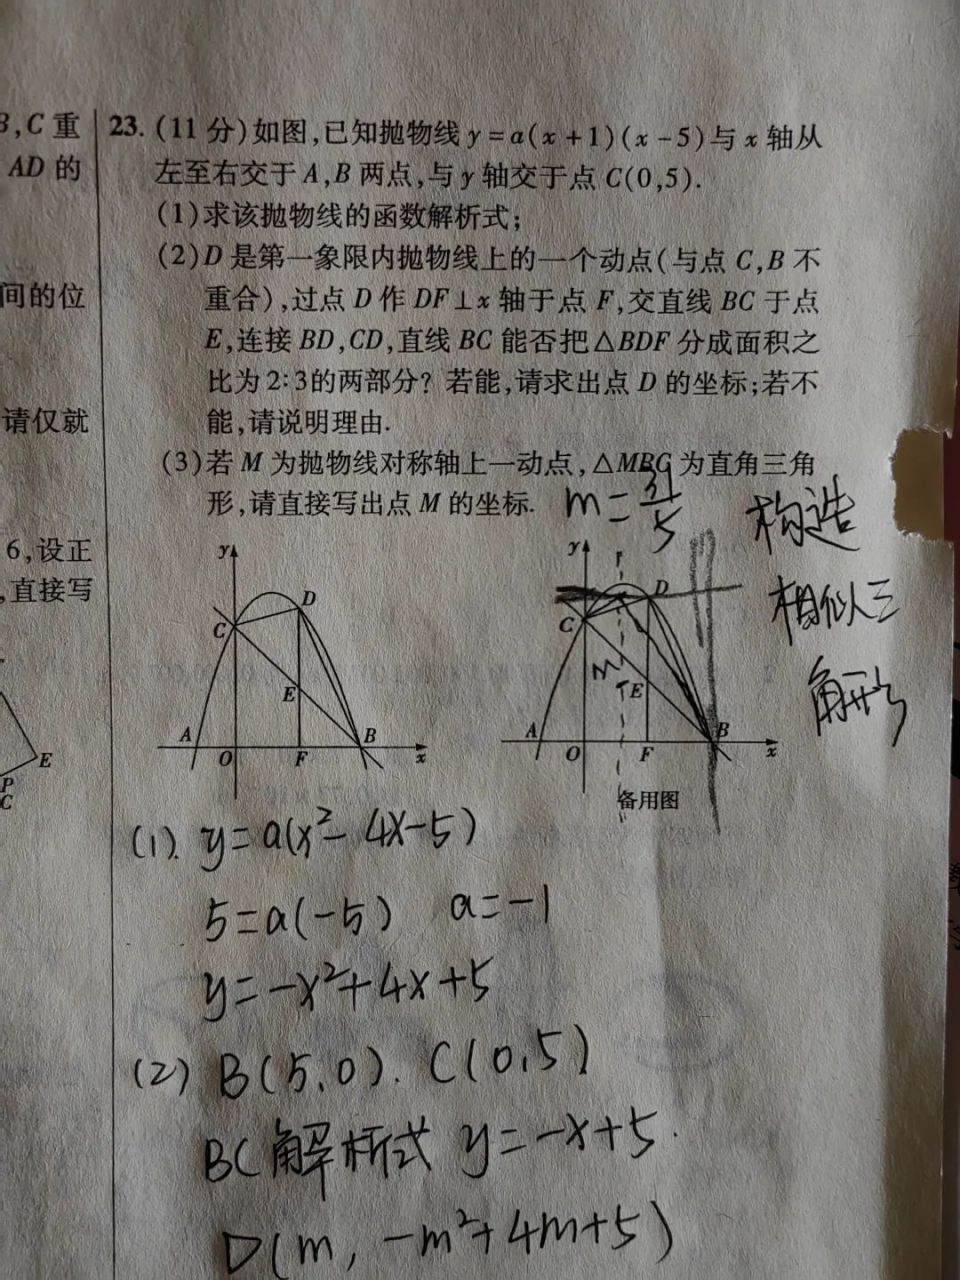 B,C 重
AD 的
间的位
请仅就
6,设正
,直接写
E
P
C
23. (11 分)如图,已知抛物线 y=a(x+1)(x-5)与 x 轴从
左至右交于 A,B 两点,与 y 轴交于点 C(0,5).
(1)求该抛物线的函数解析式;
(2)D 是第一象限内抛物线上的一个动点(与点 C,B 不
重合),过点 D 作 DF⊥x 轴于点 F,交直线 BC 于点
E,连接 BD,CD,直线 BC 能否把△BDF 分成面积之
比为 2:3的两部分? 若能,请求出点 D 的坐标;若不
能,请说明理由.
(3)若 M 为抛物线对称轴上一动点,△MBC 为直角三角
形,请直接写出点 M 的坐标.
构造
相似三
角形
y
C
D
E
A
O
F
B
x
y
C
D
M
E
A
O
F
B
x
备用图
(1). y=a(x²-4x-5)
5=a(-5) a=-1
y=-x²+4x+5
(2) B(5,0). C(0,5)
BC解析式 y=-x+5.
D(m, -m²+4m+5)